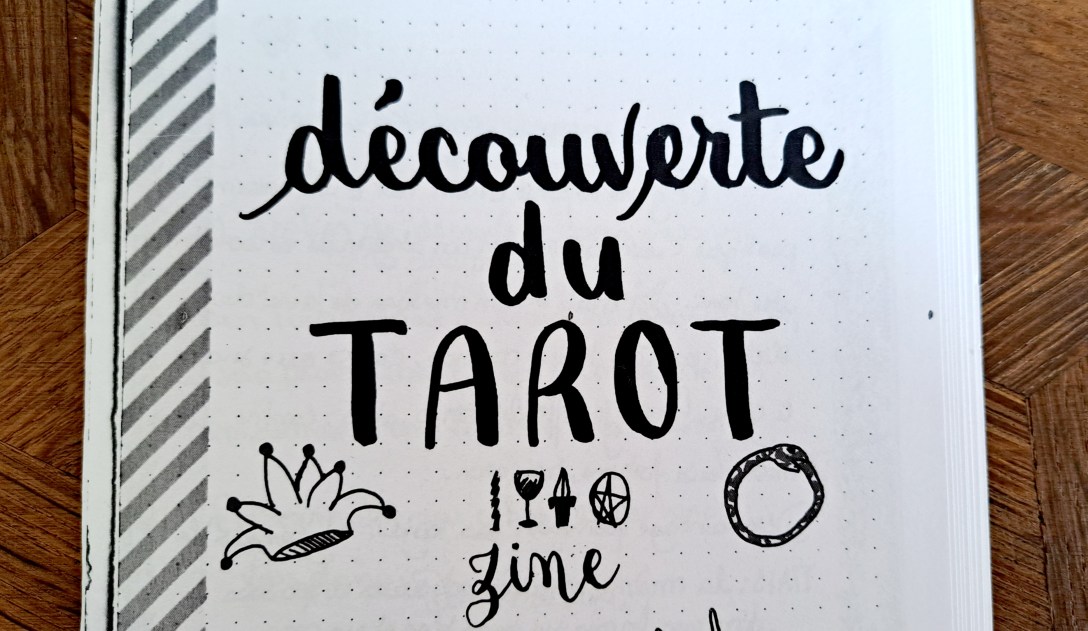 découverte
du
TAROT
zine